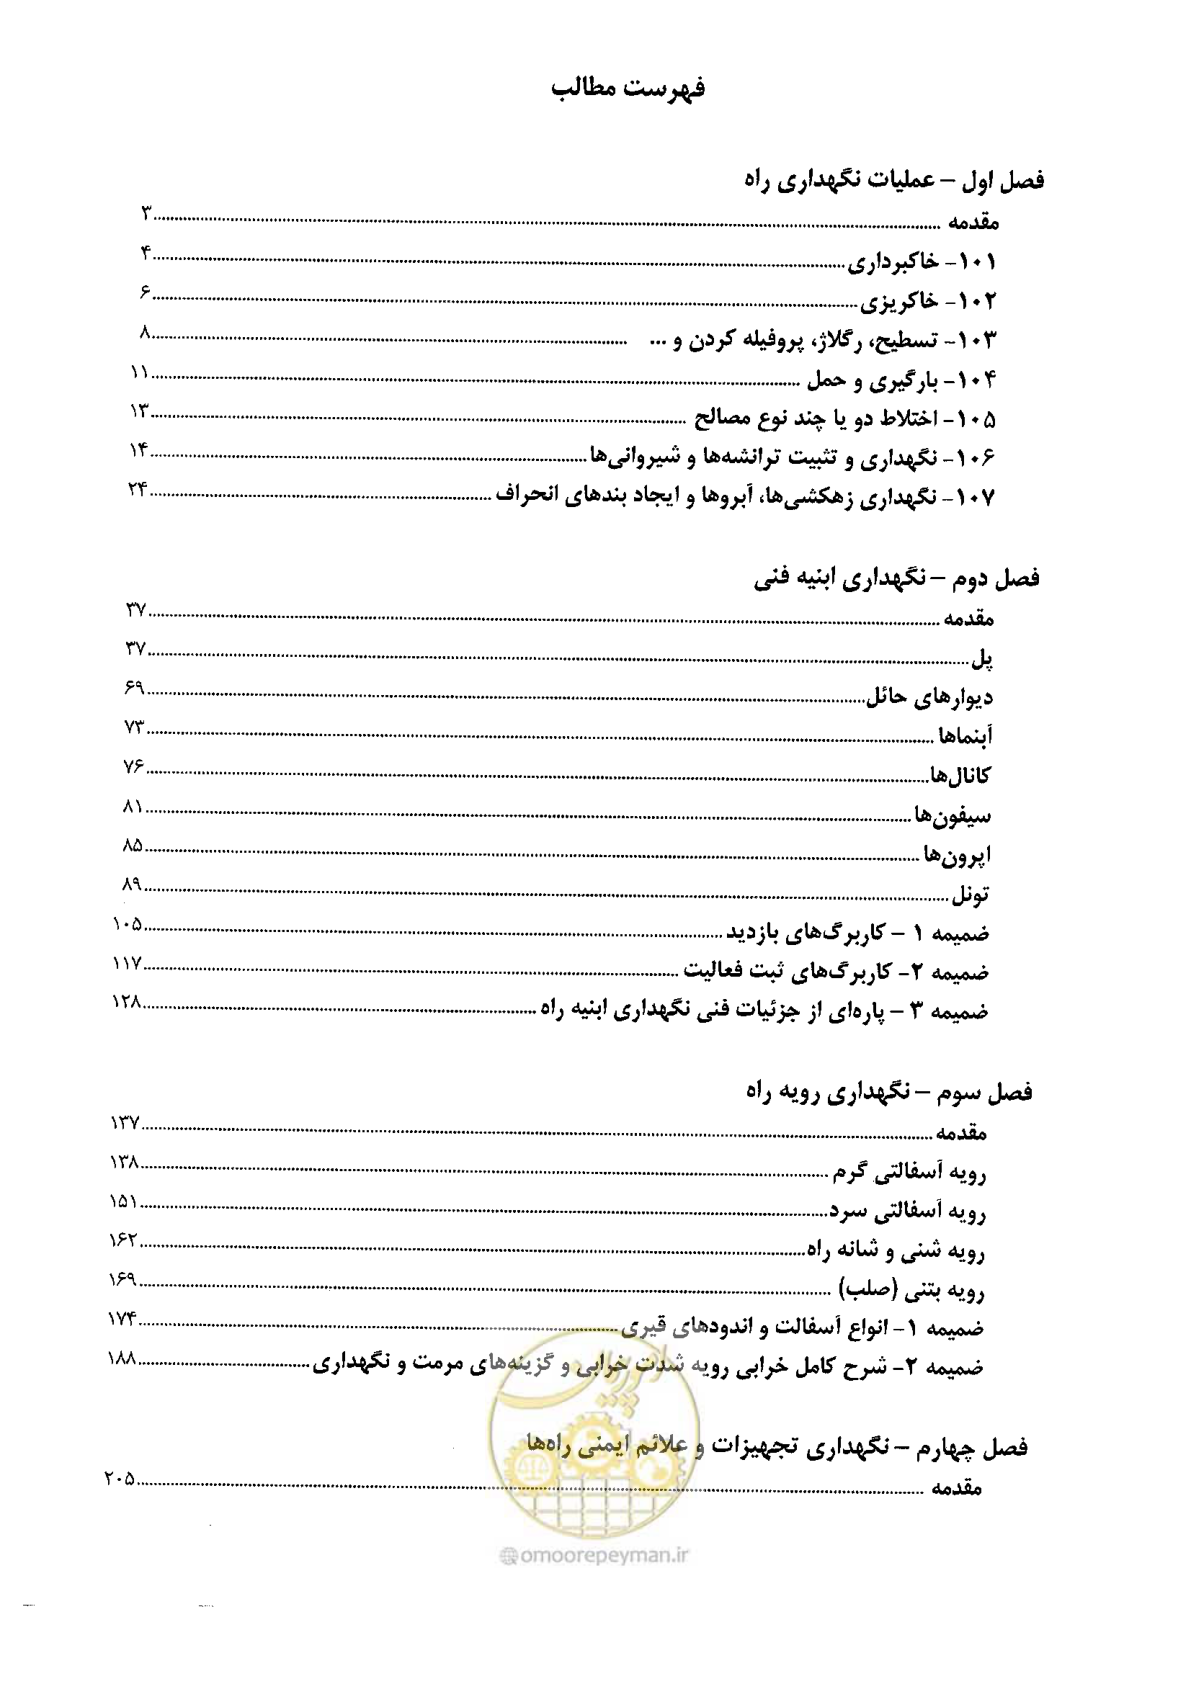 فهرست مطالب
فصل اول – عملیات نگهداری راه
مقدمه ........ ۳
۱۰۱- خاکبرداری ........ ۴
۱۰۲- خاکریزی ........ ۶
۱۰۳- تسطیح، رگلاژ، پروفیله کردن و ... ........ ۸
۱۰۴- بارگیری و حمل ........ ۱۱
۱۰۵- اختلاط دو یا چند نوع مصالح ........ ۱۳
۱۰۶- نگهداری و تثبیت ترانشه‌ها و شیروانی‌ها ........ ۱۴
۱۰۷- نگهداری زهکشی‌ها، آبروها و ایجاد بندهای انحراف ........ ۲۴
فصل دوم – نگهداری ابنیه فنی
مقدمه ........ ۳۷
پل ........ ۳۷
دیوارهای حائل ........ ۶۹
آبنماها ........ ۷۳
کانال‌ها ........ ۷۶
سیفون‌ها ........ ۸۱
اپرون‌ها ........ ۸۵
تونل ........ ۸۹
ضمیمه ۱ – کاربرگ‌های بازدید ........ ۱۰۵
ضمیمه ۲- کاربرگ‌های ثبت فعالیت ........ ۱۱۷
ضمیمه ۳ – پاره‌ای از جزئیات فنی نگهداری ابنیه راه ........ ۱۲۸
فصل سوم – نگهداری رویه راه
مقدمه ........ ۱۳۷
رویه آسفالتی گرم ........ ۱۳۸
رویه آسفالتی سرد ........ ۱۵۱
رویه شنی و شانه راه ........ ۱۶۲
رویه بتنی (صلب) ........ ۱۶۹
ضمیمه ۱- انواع آسفالت و اندودهای قیری ........ ۱۷۴
ضمیمه ۲- شرح کامل خرابی رویه شدت خرابی و گزینه‌های مرمت و نگهداری ........ ۱۸۸
فصل چهارم – نگهداری تجهیزات و علائم ایمنی راه‌ها
مقدمه ........ ۲۰۵
امور پیمان
@omoorepeyman.ir